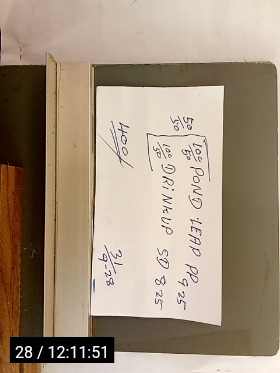 50/50
100/50 POND LEAP PP 925
100/50 DRINKUP SD 825
400/
31/9-28
28 / 12:11:51